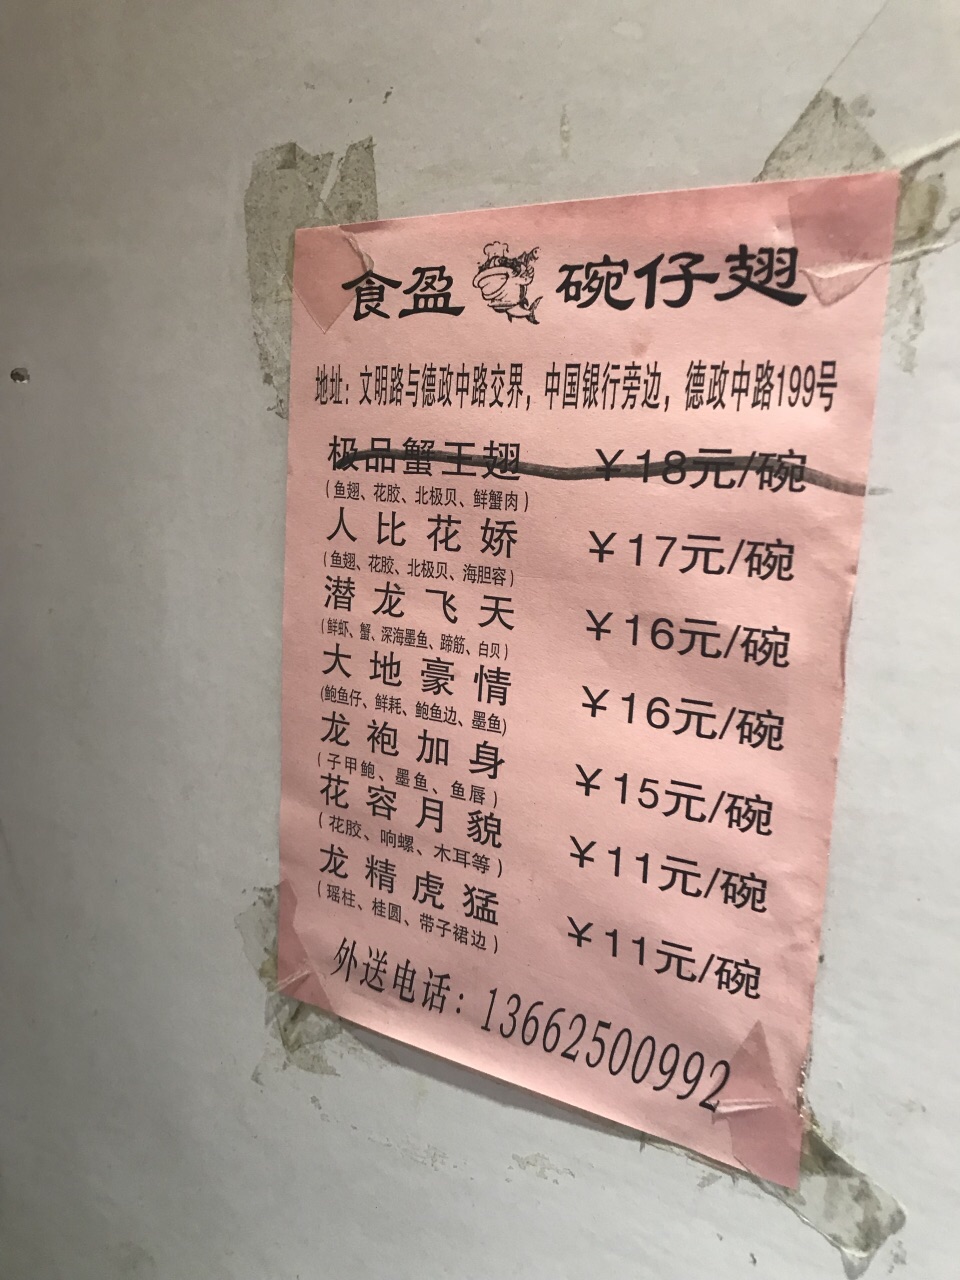 食盈 碗仔翅
地址：文明路与德政中路交界，中国银行旁边，德政中路199号
极品蟹王翅 ￥18元/碗
（鱼翅、花胶、北极贝、鲜蟹肉）
人比花娇 ￥17元/碗
（鱼翅、花胶、北极贝、海胆容）
潜龙飞天 ￥16元/碗
（鲜虾、蟹、深海墨鱼、蹄筋、白贝）
大地豪情 ￥16元/碗
（鲍鱼仔、鲜耗、鲍鱼边、墨鱼）
龙袍加身 ￥15元/碗
（子甲鲍、墨鱼、鱼唇）
花容月貌 ￥11元/碗
（花胶、响螺、木耳等）
龙精虎猛 ￥11元/碗
（瑶柱、桂圆、带子裙边）
外送电话：13662500992